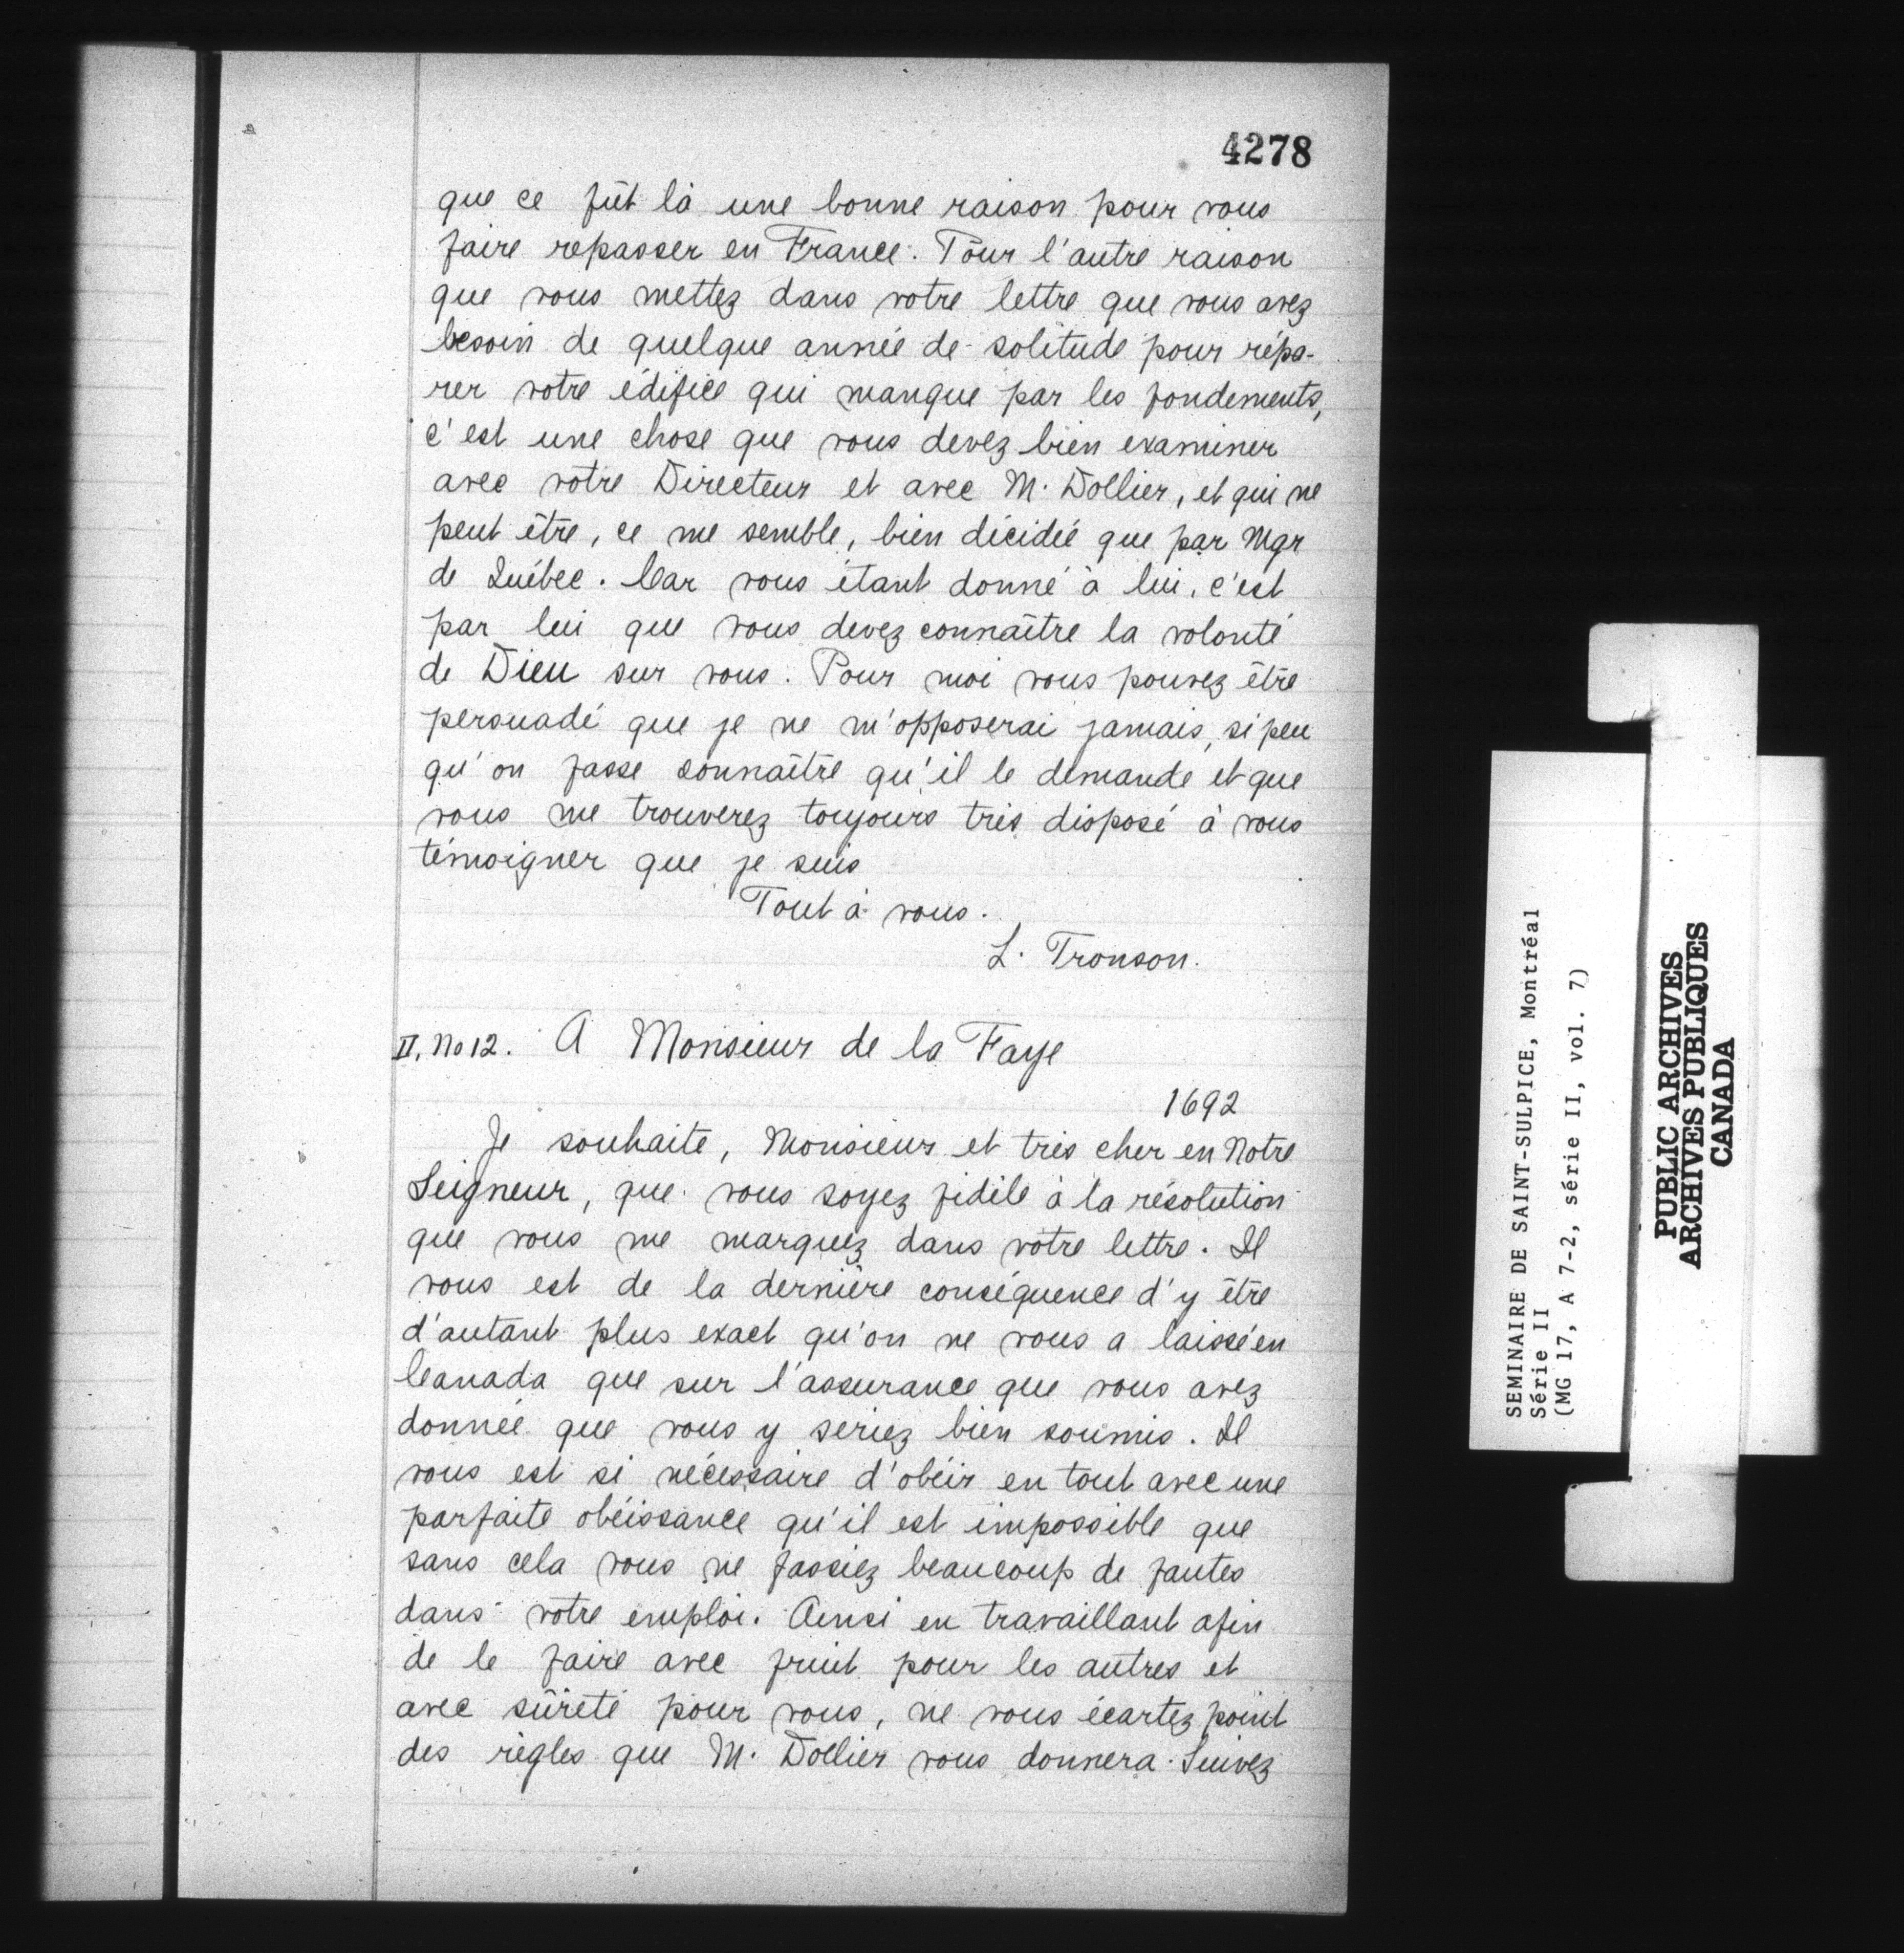 4278
que ce fût là une bonne raison pour vous
faire repasser en France. Pour l'autre raison
que vous mettez dans votre lettre que vous avez
besoin de quelque année de solitude pour répa-
rer votre édifice qui manque par les fondements,
c'est une chose que vous devez bien examiner
avec votre Directeur et avec M. Dollier, et qui ne
peut être, ce me semble, bien décidée que par Mgr
de Québec. Car vous étant donné à lui, c'est
par lui que vous devez connaître la volonté
de Dieu sur vous. Pour moi vous pouvez être
persuadé que je ne m'opposerai jamais, si peu
qu'on fasse connaître qu'il le demande et que
vous me trouverez toujours très disposé à vous
témoigner que je suis
Tout à vous.
L. Tronson.
II, No 12. A Monsieur de la Faye
1692
Je souhaite, Monsieur et très cher en Notre
Seigneur, que vous soyez fidèle à la résolution
que vous me marquez dans votre lettre. Il
vous est de la dernière conséquence d'y être
d'autant plus exact qu'on ne vous a laissé en
Canada que sur l'assurance que vous avez
donnée que vous y seriez bien soumis. Il
vous est si nécessaire d'obéir en tout avec une
parfaite obéissance qu'il est impossible que
sans cela vous ne fassiez beaucoup de fautes
dans votre emploi. Ainsi en travaillant afin
de le faire avec fruit pour les autres et
avec sûreté pour vous, ne vous écartez point
des règles que M. Dollier vous donnera. Suivez
SEMINAIRE DE SAINT-SULPICE, Montréal
Série II
(MG 17, A 7-2, série II, vol. 7)
PUBLIC ARCHIVES
ARCHIVES PUBLIQUES
CANADA